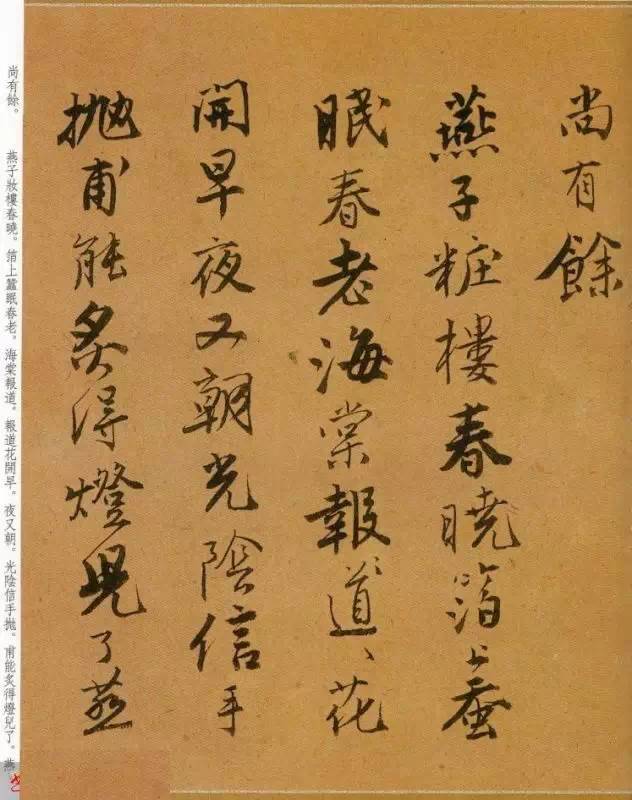 尚有餘
燕子粧樓春曉箔上蚕
眠春老海棠報〻道〻花
開早夜又朝光陰信手
抛甫能炙得燈兒了燕
尚有餘。　燕子妝樓春曉。箔上蠶眠春老。海棠報道。報道花開早。夜又朝。光陰信手拋。甫能炙得燈兒了。燕